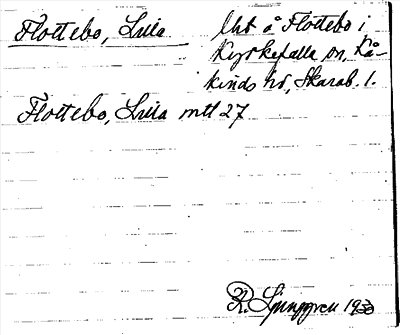 Flottebo, Lilla
Utb å Flottebo i
Kyrkefalla sn, Kå-
kinds hd, Skarab. l.
Flottebo, Lilla mtl 27
R. Ljunggren 1930